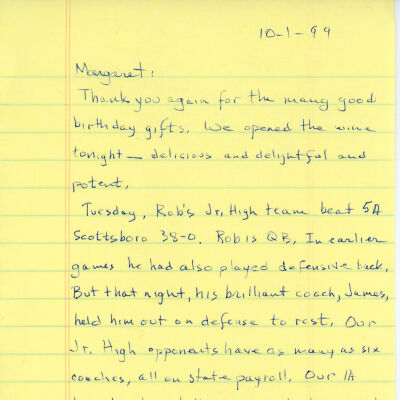 10-1-99
Margaret:
Thank you again for the many good
birthday gifts. We opened the wine
tonight — delicious and delightful and
potent.
Tuesday, Rob's Jr. High team beat 5A
Scottsboro 38-0. Rob is QB. In earlier
games he had also played defensive back.
But that night, his brilliant coach, James,
held him out on defense to rest. Our
Jr. High opponents have as many as six
coaches, all on state payroll. Our 1A